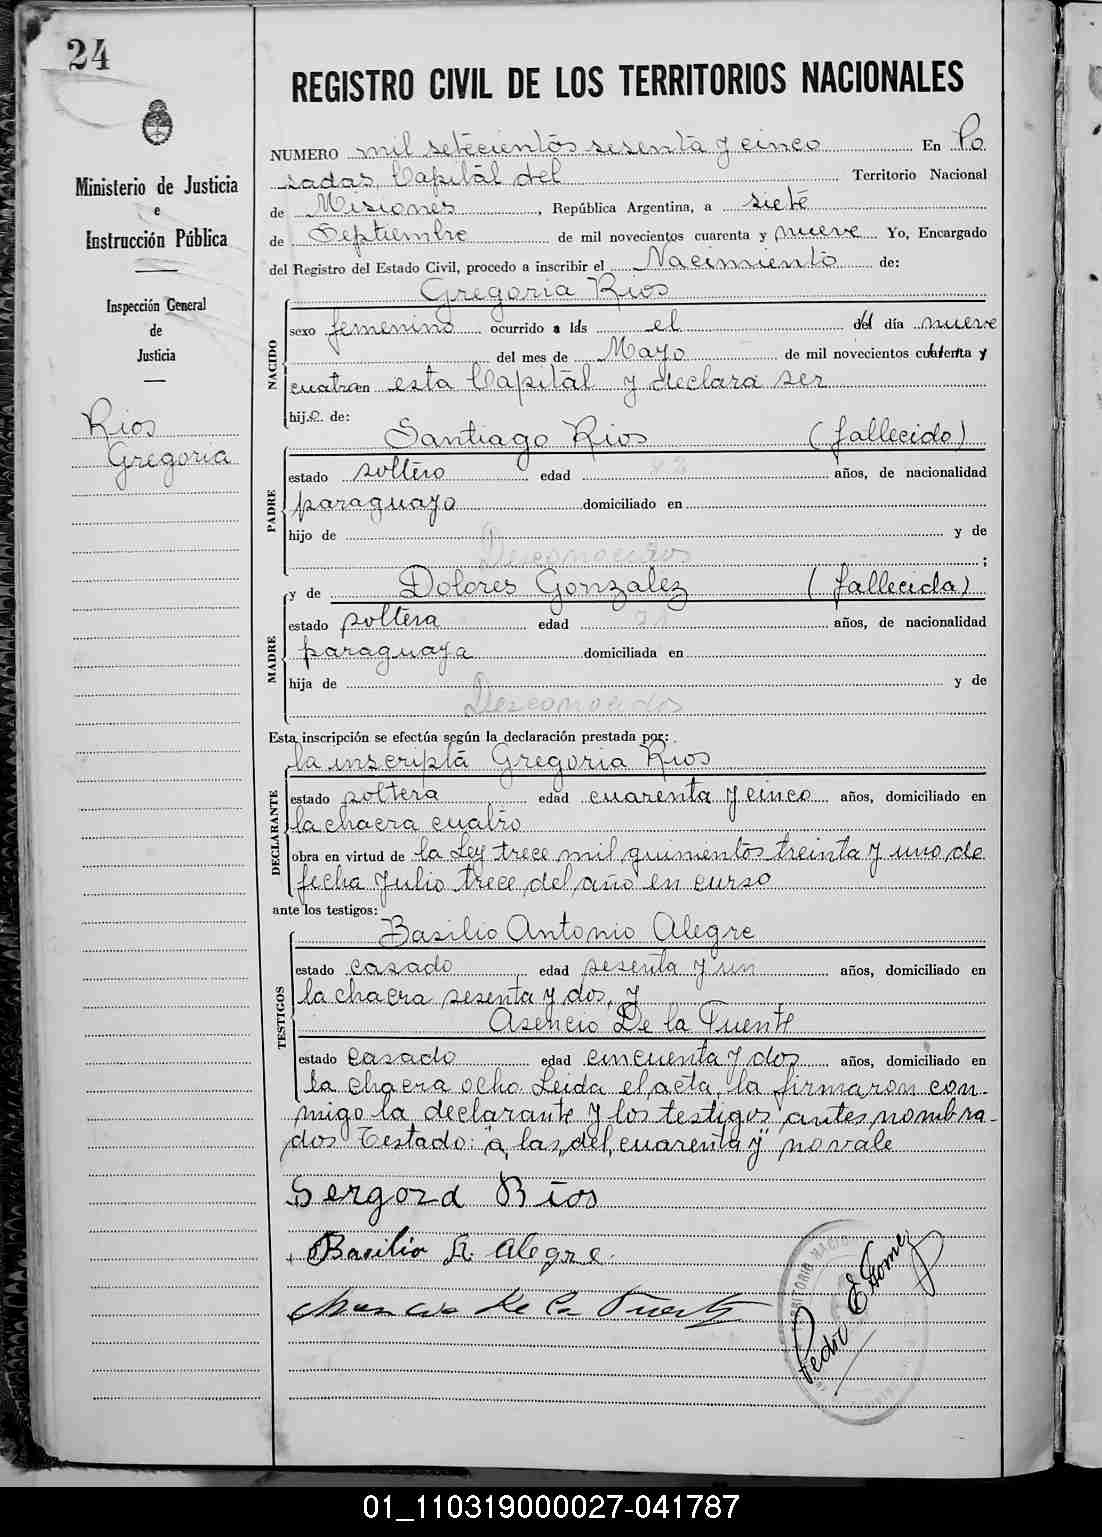 24
Ministerio de Justicia
e
Instrucción Pública
Inspección General
de
Justicia
Rios
Gregoria
REGISTRO CIVIL DE LOS TERRITORIOS NACIONALES
NUMERO mil setecientos sesenta y cinco En Po
sadas, Capital del Territorio Nacional
de Misiones, República Argentina, a siete
de Septiembre de mil novecientos cuarenta y nueve Yo, Encargado
del Registro del Estado Civil, procedo a inscribir el Nacimiento de:
NACIDO
Gregoria Rios
sexo femenino ocurrido a las el del día nueve
del mes de Mayo de mil novecientos cuarenta y
cuatro en esta Capital y declara ser
hij.a. de:
PADRE
Santiago Rios (fallecido)
estado soltero edad años, de nacionalidad
paraguayo domiciliado en
hijo de y de
Desconocidos ;
MADRE
y de Dolores Gonzalez (fallecida)
estado soltera edad años, de nacionalidad
paraguaya domiciliada en
hija de y de
Desconocidos
Esta inscripción se efectúa según la declaración prestada por:
DECLARANTE
la inscripta Gregoria Rios
estado soltera edad cuarenta y cinco años, domiciliado en
la chacra cuatro
obra en virtud de la Ley trece mil quinientos treinta y uno de
fecha Julio trece del año en curso
ante los testigos:
TESTIGOS
Basilio Antonio Alegre
estado casado edad sesenta y un años, domiciliado en
la chacra sesenta y dos, y
Asencio De la Fuente
estado casado edad cincuenta y dos años, domiciliado en
la chacra ocho. Leida el acta, la firmaron con-
migo la declarante y los testigos antes nombra-
dos Testado: "a las, del, cuarenta y" no vale
Gergora Rios
Basilio A. Alegre
De la Fuente
Pedro E Gomez
TERRITORIO NACIO
01_110319000027-041787